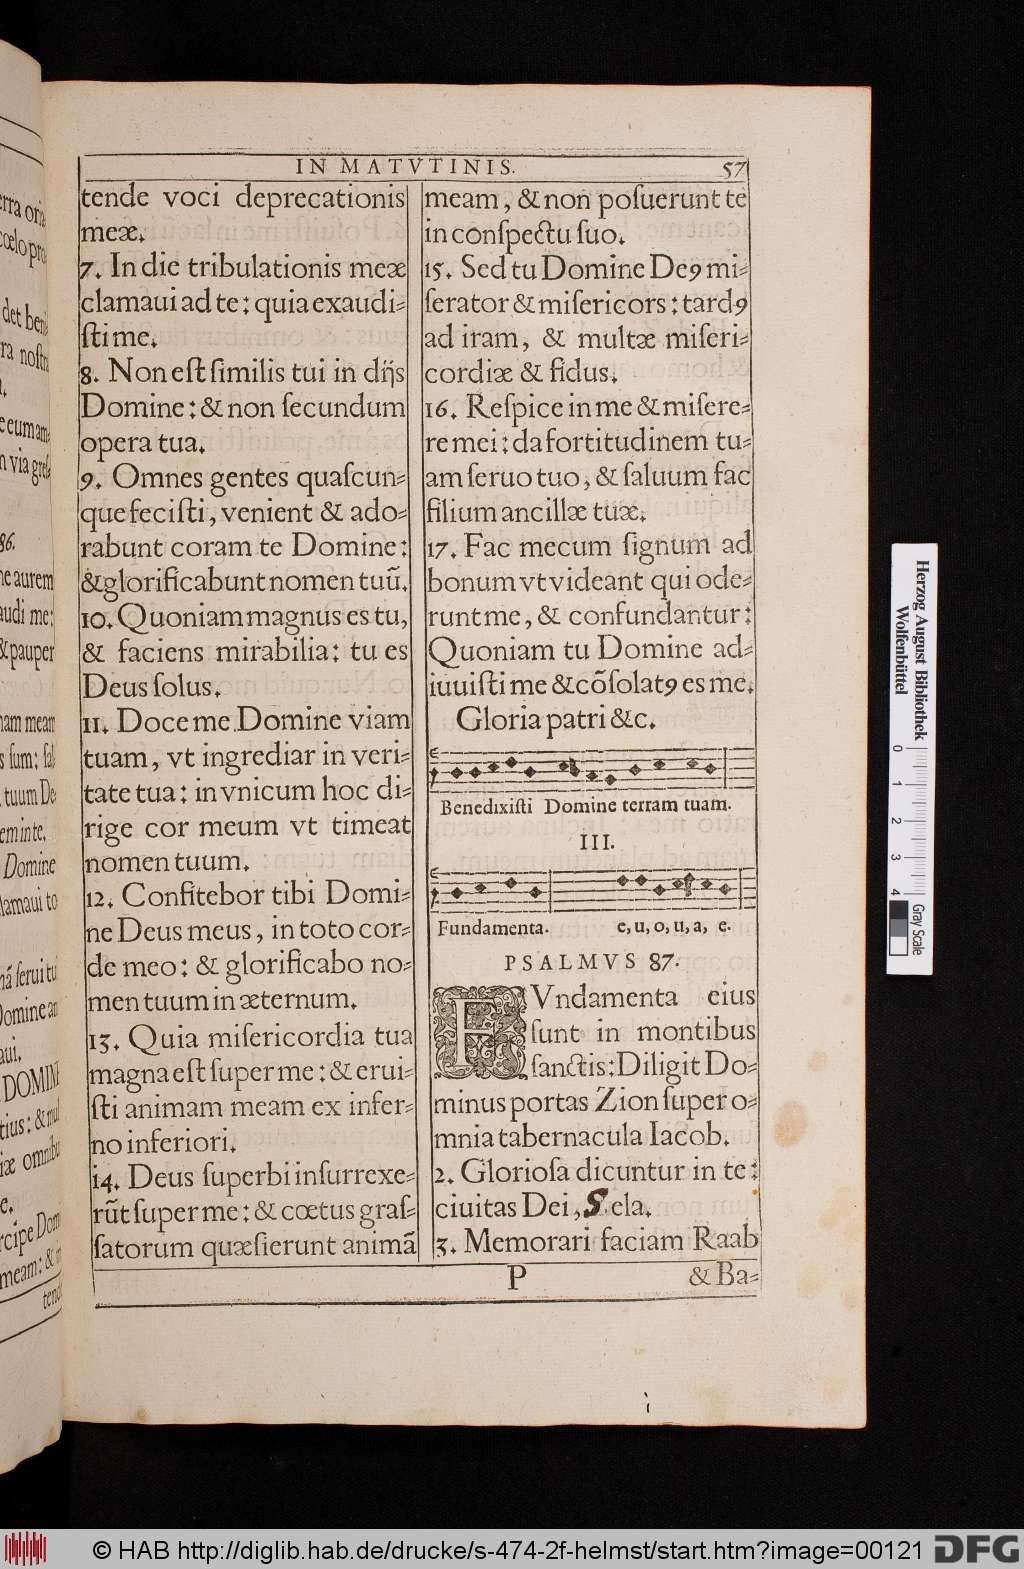 IN MATVTINIS.
57
tende voci deprecationis
meæ.
7. In die tribulationis meæ
clamaui ad te: quia exaudi=
ſti me.
8. Non eſt ſimilis tui in dijs
Domine: & non ſecundum
opera tua.
9. Omnes gentes quaſcun=
que feciſti, venient & ado=
rabunt coram te Domine:
& glorificabunt nomen tuū.
10. Quoniam magnus es tu,
& faciens mirabilia: tu es
Deus ſolus.
11. Doce me Domine viam
tuam, vt ingrediar in veri=
tate tua: in vnicum hoc di=
rige cor meum vt timeat
nomen tuum.
12. Confitebor tibi Domi=
ne Deus meus, in toto cor=
de meo: & glorificabo no=
men tuum in æternum.
13. Quia miſericordia tua
magna eſt ſuper me: & erui=
ſti animam meam ex infer=
no inferiori.
14. Deus ſuperbi inſurrexe=
rūt ſuper me: & cœtus graſ=
ſatorum quæſierunt animā
meam, & non poſuerunt te
in conſpectu ſuo.
15. Sed tu Domine Deꝰ mi=
ſerator & miſericors: tardꝰ
ad iram, & multæ miſeri=
cordiæ & fidus.
16. Reſpice in me & miſere=
re mei: da fortitudinem tu=
am ſeruo tuo, & ſaluum fac
filium ancillæ tuæ.
17. Fac mecum ſignum ad
bonum vt videant qui ode=
runt me, & confundantur:
Quoniam tu Domine ad=
iuuiſti me & cōſolatꝰ es me.
Gloria patri &c.
Benedixiſti Domine terram tuam.
III.
Fundamenta. e, u, o, u, a, e.
PSALMVS 87.
FVndamenta eius
ſunt in montibus
ſanctis: Diligit Do=
minus portas Zion ſuper o=
mnia tabernacula Iacob.
2. Glorioſa dicuntur in te:
ciuitas Dei, Sela.
3. Memorari faciam Raab
P
& Ba=
erra oria
cœlo pro
det beni
ra noſtra
e eum am=
n via greſ=
86.
ne aurem
audi me:
& pauper
nam meam
s ſum: ſal
tuum De
em in te.
Domine
lamaui to
mā ſerui tui
Domine an
aui.
DOMINE
tius: & mul
iæ omnibu
e.
rcipe Dom
meam: & in
tend
Herzog August Bibliothek
Wolfenbüttel
0 1 2 3 4
Gray Scale
© HAB http://diglib.hab.de/drucke/s-474-2f-helmst/start.htm?image=00121
DFG